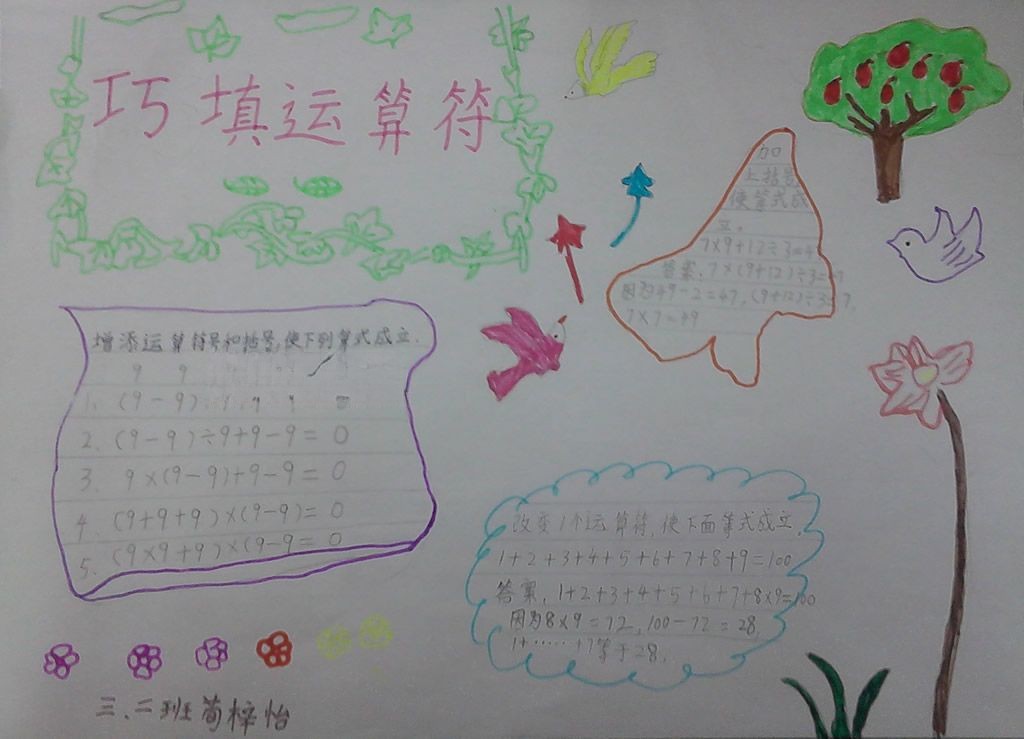 巧填运算符
增添运算符号和括号,使下列算式成立.
9 9
1. (9-9)
2. (9-9)÷9+9-9= 0
3. 9×(9-9)+9-9= 0
4. (9+9+9)×(9-9)= 0
5. (9×9+9)×(9-9= 0
加
上括号
使算式成
立。
7×9+12÷3=4
答案:7×(9+12)÷3=49
因为49-2=47,(9+12)÷3=7.
7×7=49
改变1个运算符,使下面算式成立.
1+2+3+4+5+6+7+8+9=100
答案:1+2+3+4+5+6+7+8×9=100
因为8×9=72,100-72=28,
1+……+7等于28.
三、二班简梓怡